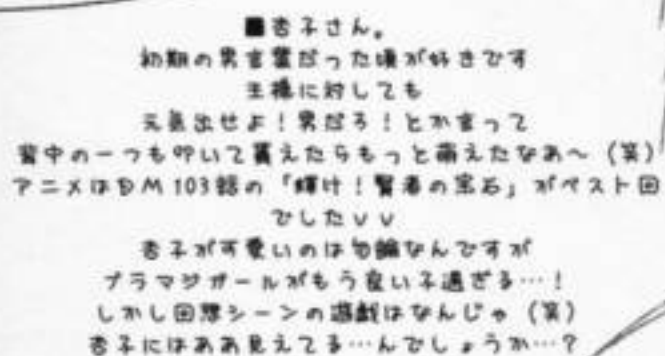 ■杏子さん。
初期の男言葉だった頃が好きです
王様に対しても
元気出せよ！男だろ！とか言って
背中の一つも叩いて貰えたらもっと萌えたなあ～（笑）
アニメはDM103話の「輝け！賢者の宝石」がベスト回
でしたvv
杏子が可愛いのは勿論なんですが
ブラマジガールがもう良い子過ぎる…！
しかし回想シーンの遊戯はなんじゃ（笑）
杏子にはああ見えてる…んでしょうか…？